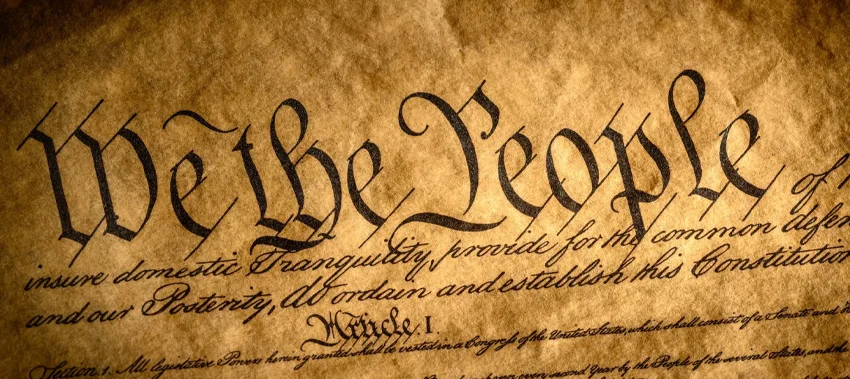 We the People of
insure domestic Tranquility, provide for the common defen
and our Posterity, do ordain and establish this Constitution
Article. I.
Section. 1. All legislative Powers herein granted shall be vested in a Congress of the United States, which shall consist of a Senate and
been chosen every second Year by the People of the several States, and the